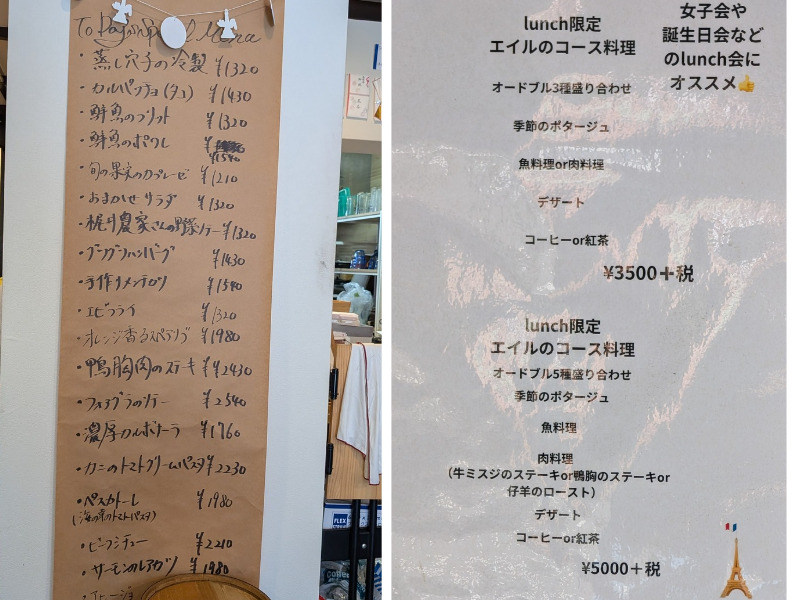 Today's Special Menu
・蒸し穴子の冷製 ¥1320
・カルパッチョ(タコ) ¥1430
・鮮魚のフリット ¥1320
・鮮魚のポワレ ¥1540
・旬の果実のカプレーゼ ¥1210
・おまかせサラダ ¥1320
・梶井農家さんの野菜ソテー ¥1320
・ハンバーグ ¥1430
・手作りメンチカツ ¥1540
・エビフライ ¥1320
・オレンジ香るスペアリブ ¥1980
・鴨胸肉のステーキ ¥2430
・フォアグラのソテー ¥2540
・濃厚カルボナーラ ¥1760
・カニのトマトクリームパスタ ¥2230
・ペスカトーレ ¥1980
(海の幸のトマトパスタ)
・ビーフシチュー ¥2210
・サーモンのレアカツ ¥1980
FLEX
lunch限定
エイルのコース料理
女子会や
誕生日会など
のlunch会に
オススメ👍
オードブル3種盛り合わせ
季節のポタージュ
魚料理or肉料理
デザート
コーヒーor紅茶
¥3500+税
lunch限定
エイルのコース料理
オードブル5種盛り合わせ
季節のポタージュ
魚料理
肉料理
(牛ミスジのステーキor鴨胸のステーキor
仔羊のロースト)
デザート
コーヒーor紅茶
¥5000+税